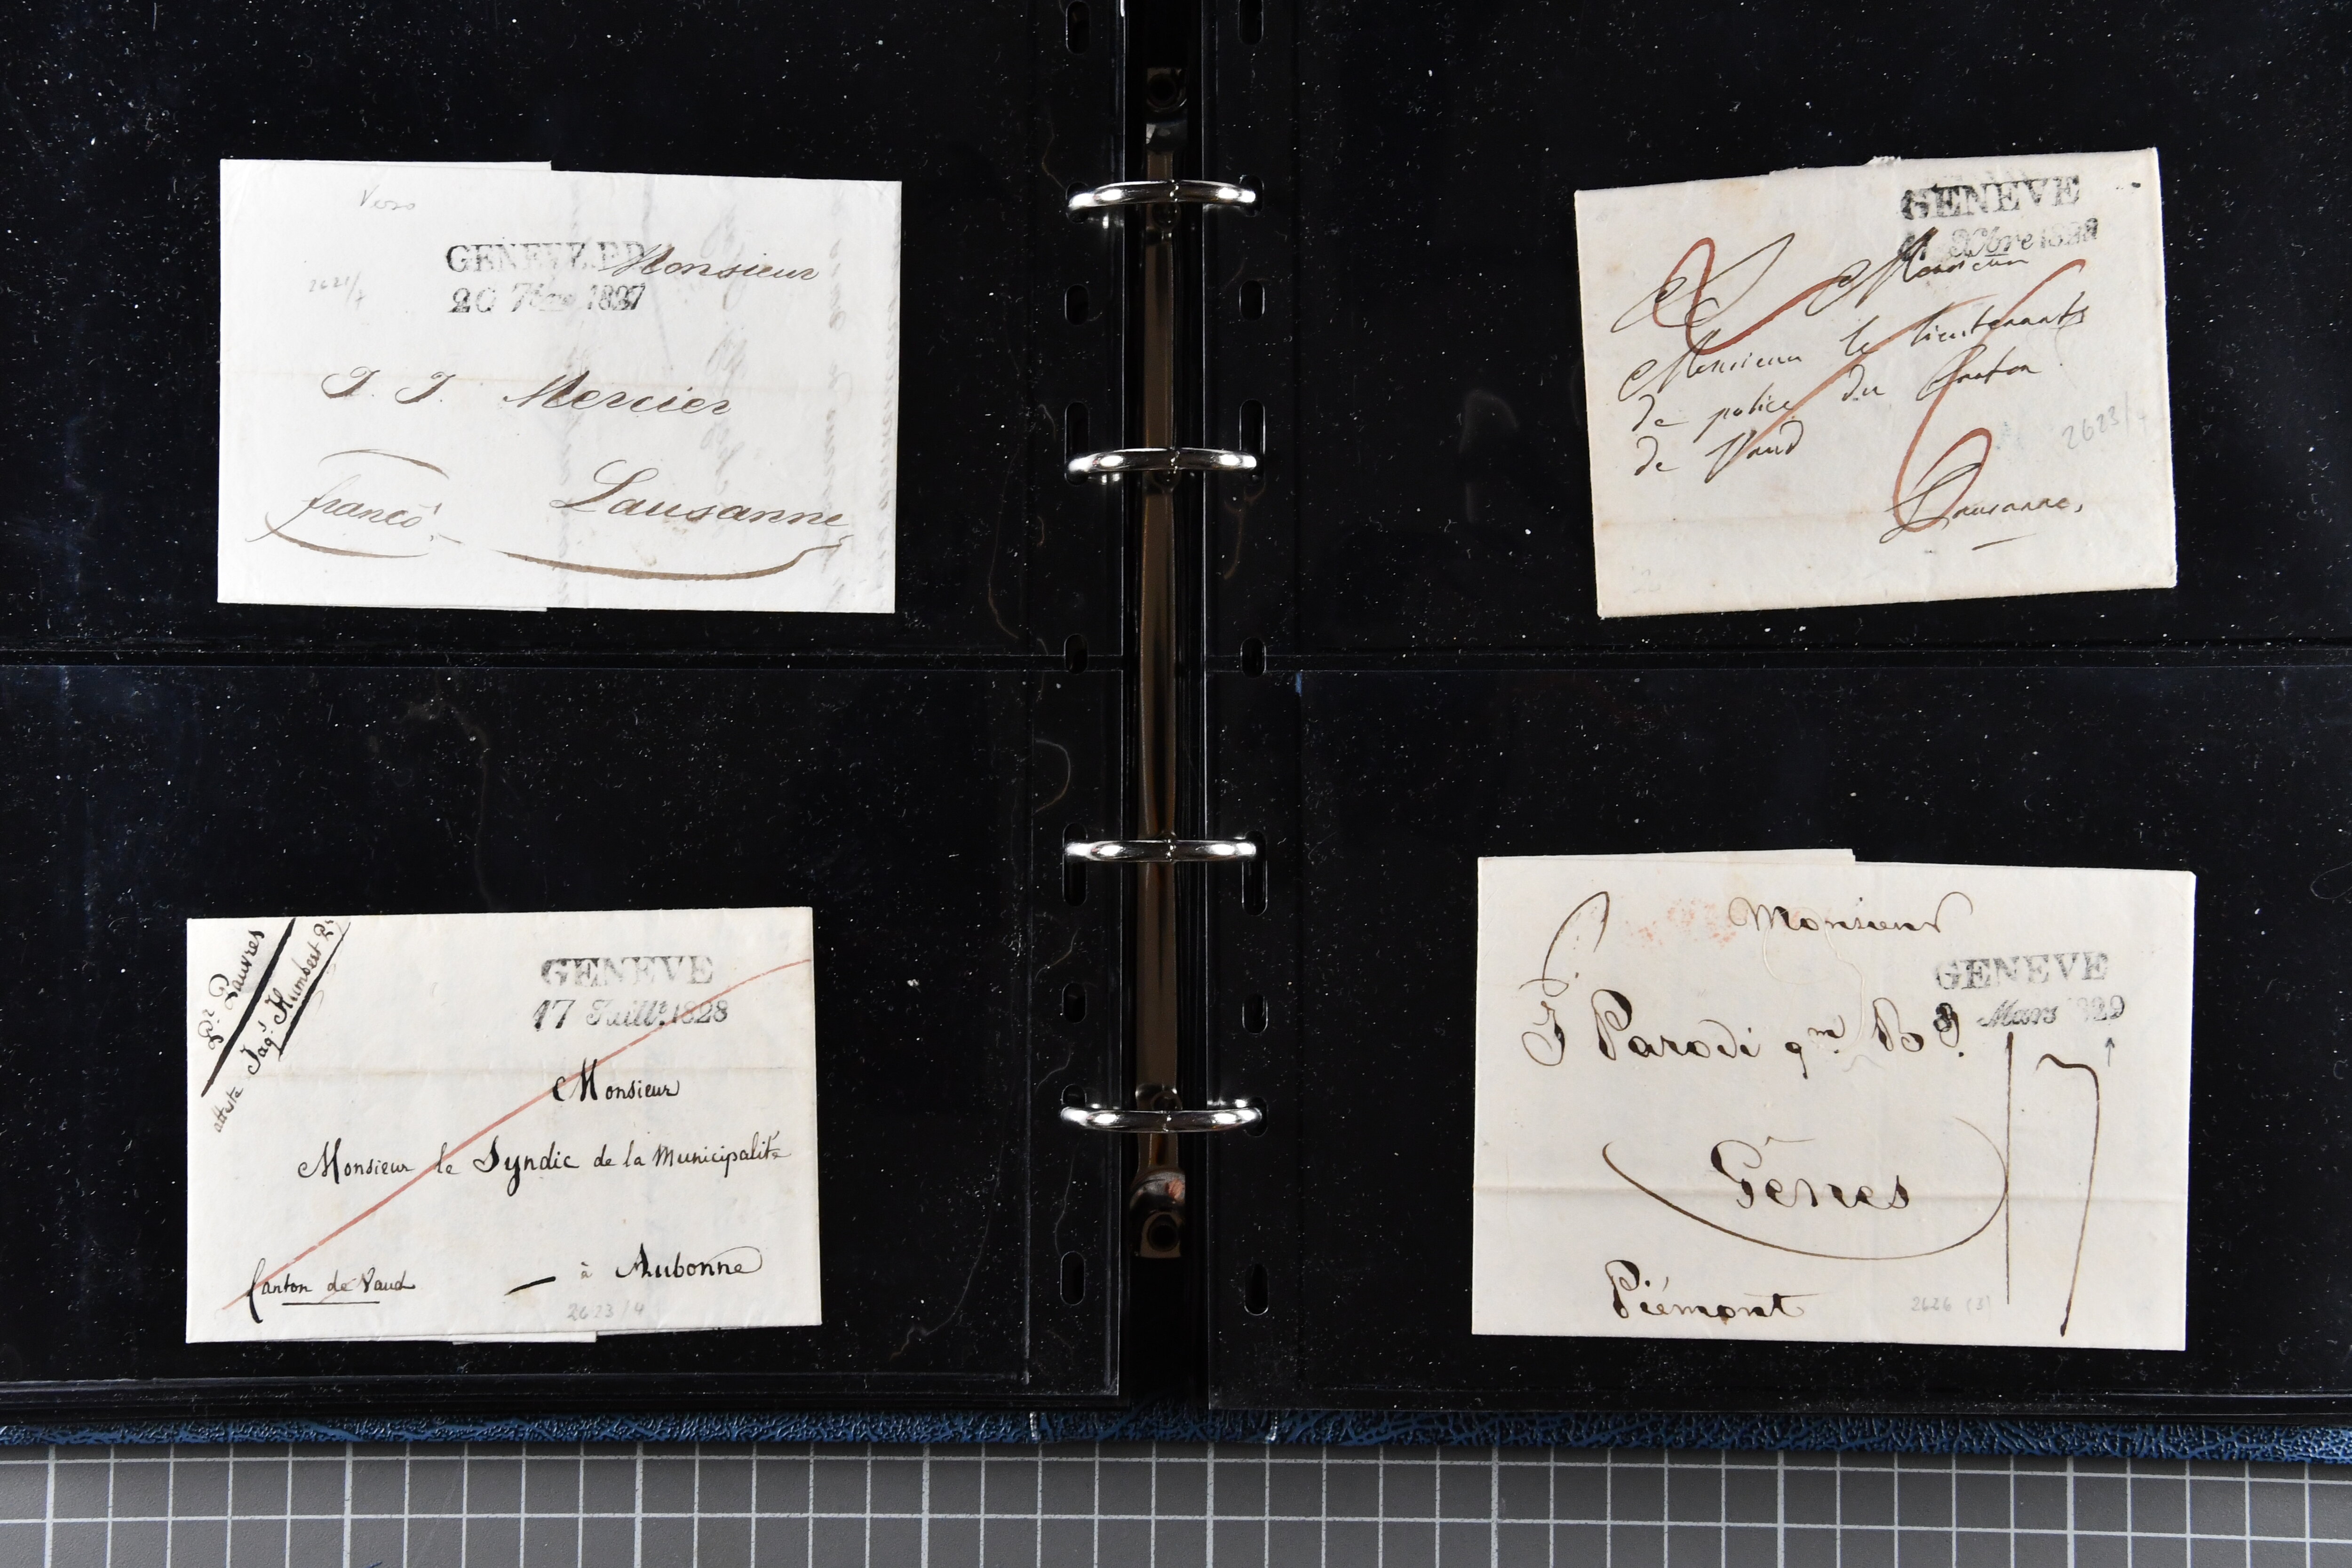 Verso
GENEVE.P.P.
Monsieur
20 7bre 1827
2621/7
J. J. Mercier
franco
Lausanne
GENEVE
Xbre 1828
Monsieur
Monsieur le lieutenant
de police du Canton
de Vaud
2623/
Lausanne,
Pr. Pauvres
atteste Jaq. Humbert
GENEVE
17 Juillt. 1828
Monsieur
Monsieur le Syndic de la Municipalité
Canton de Vaud
à Aubonne
2623/4
Monsieur
GENEVE
Mars 1829
Parodi qm. B
17
Gênes
Piémont
2626 (3)